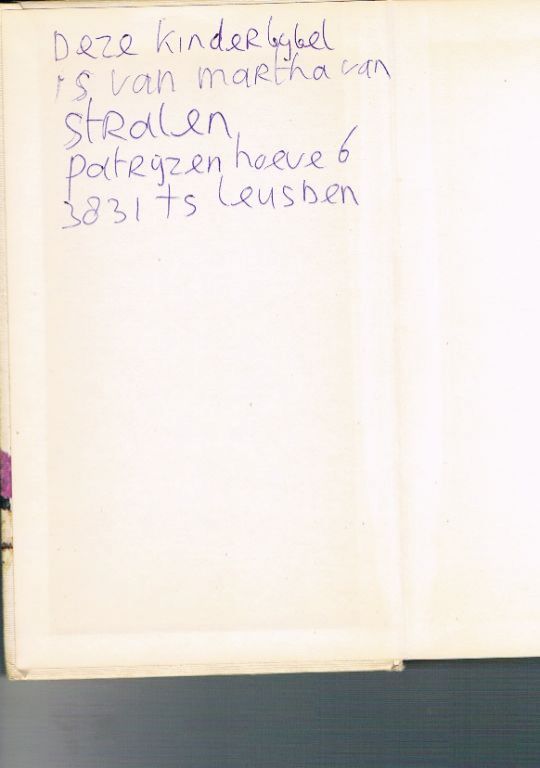 Deze kinderbijbel
is van martha van
stralen,
patrijzen hoeve 6
3831 ts leusden